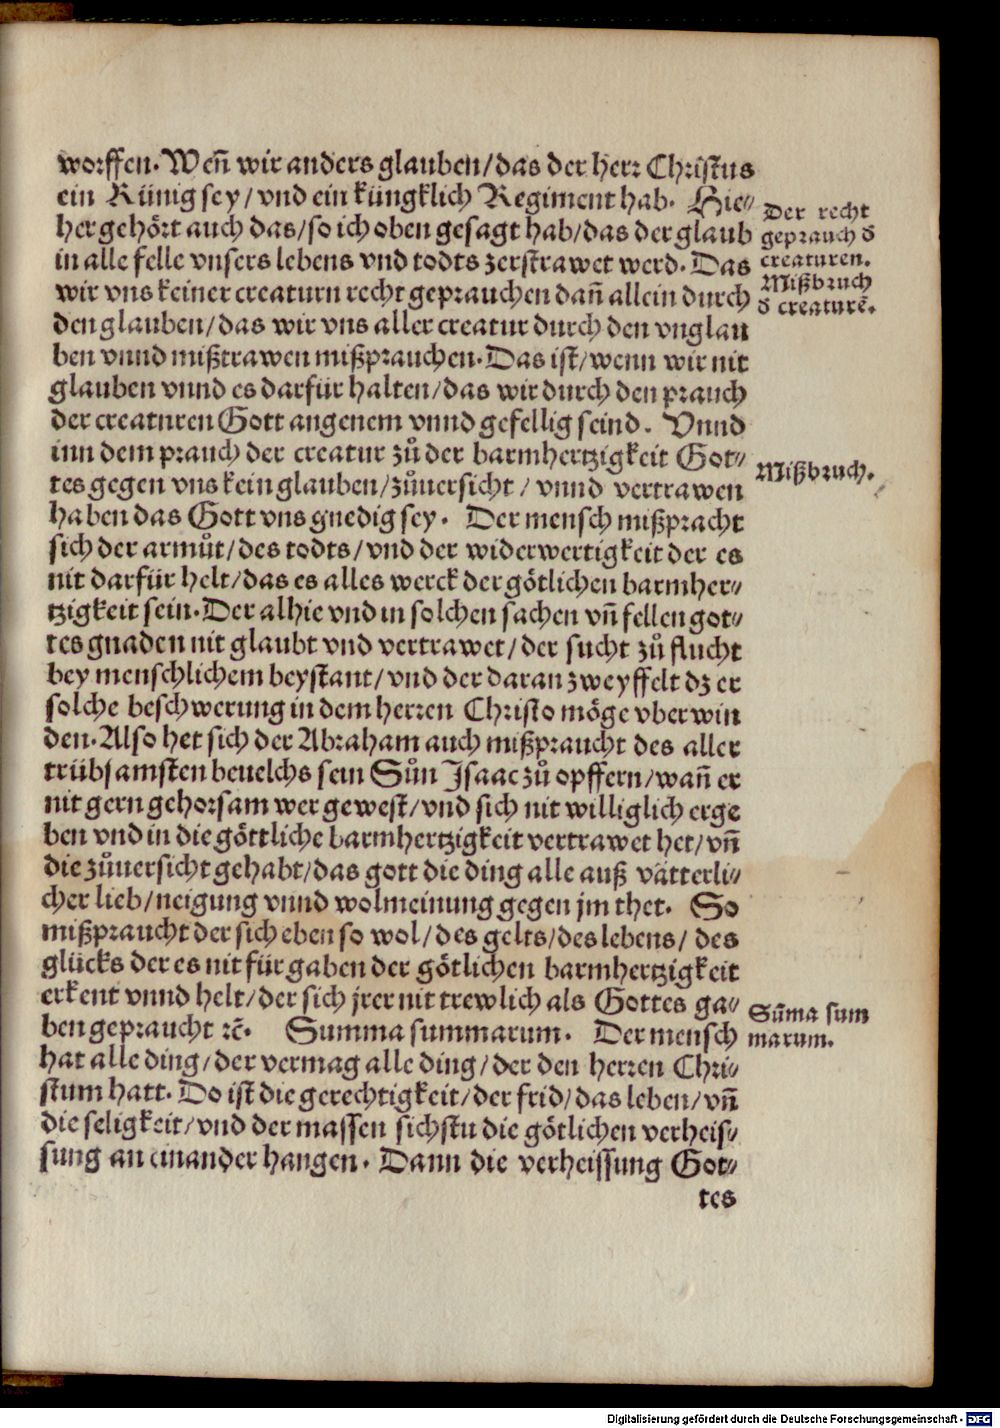 worffen. Weñ wir anders glauben/das der herr Christus
ein Künig sey/vnd ein küngklich Regiment hab. Hie⸗
her gehört auch das/so ich oben gesagt hab/das der glaub
in alle felle vnsers lebens vnd todts zerstrawet werd. Das
wir vns keiner creaturn recht geprauchen dañ allein durch
den glauben/das wir vns aller creatur durch den vnglau
ben vnnd mißtrawen mißprauchen. Das ist/wenn wir nit
glauben vnnd es darfür halten/das wir durch den prauch
der creaturen Gott angenem vnnd gefellig seind. Vnnd
inn dem prauch der creatur zů der barmhertzigkeit Got⸗
tes gegen vns kein glauben/zůuersicht/ vnnd vertrawen
haben das Gott vns gnedig sey. Der mensch mißpracht
sich der armůt/des todts/vnd der widerwertigkeit der es
nit darfür helt/das es alles werck der götlichen barmher⸗
tzigkeit sein. Der alhie vnd in solchen sachen vñ fellen got⸗
tes gnaden nit glaubt vnd vertrawet/der sucht zů flucht
bey menschlichem beystant/vnd der daran zweyffelt dz er
solche beschwerung in dem herren Christo möge vberwin
den. Also het sich der Abraham auch mißpraucht des aller
trübsamsten beuelchs sein Sůn Isaac zů opffern/wañ er
nit gern gehorsam wer gewest/vnd sich nit williglich erge
ben vnd in die göttliche barmhertzigkeit vertrawet het/vñ
die zůuersicht gehabt/das gott die ding alle auß vätterli⸗
cher lieb/neigung vnnd wolmeinung gegen jm thet. So
mißpraucht der sich eben so wol/des gelts/des lebens/ des
glücks der es nit für gaben der götlichen barmhertzigkeit
erkent vnnd helt/der sich jrer nit trewlich als Gottes ga⸗
ben gepraucht ꝛc̃. Summa summarum. Der mensch
hat alle ding/der vermag alle ding/der den herren Chri⸗
stum hatt. Do ist die gerechtigkeit/der frid/das leben/vñ
die seligkeit/vnd der massen sichstu die götlichen verheis⸗
sung an einander hangen. Dann die verheissung Got⸗
tes
Der recht
geprauch ð
creaturen.
Mißbruch
ð creaturẽ.
Mißbruch.
Sūma sum
marum.
Digitalisierung gefördert durch die Deutsche Forschungsgemeinschaft - DFG